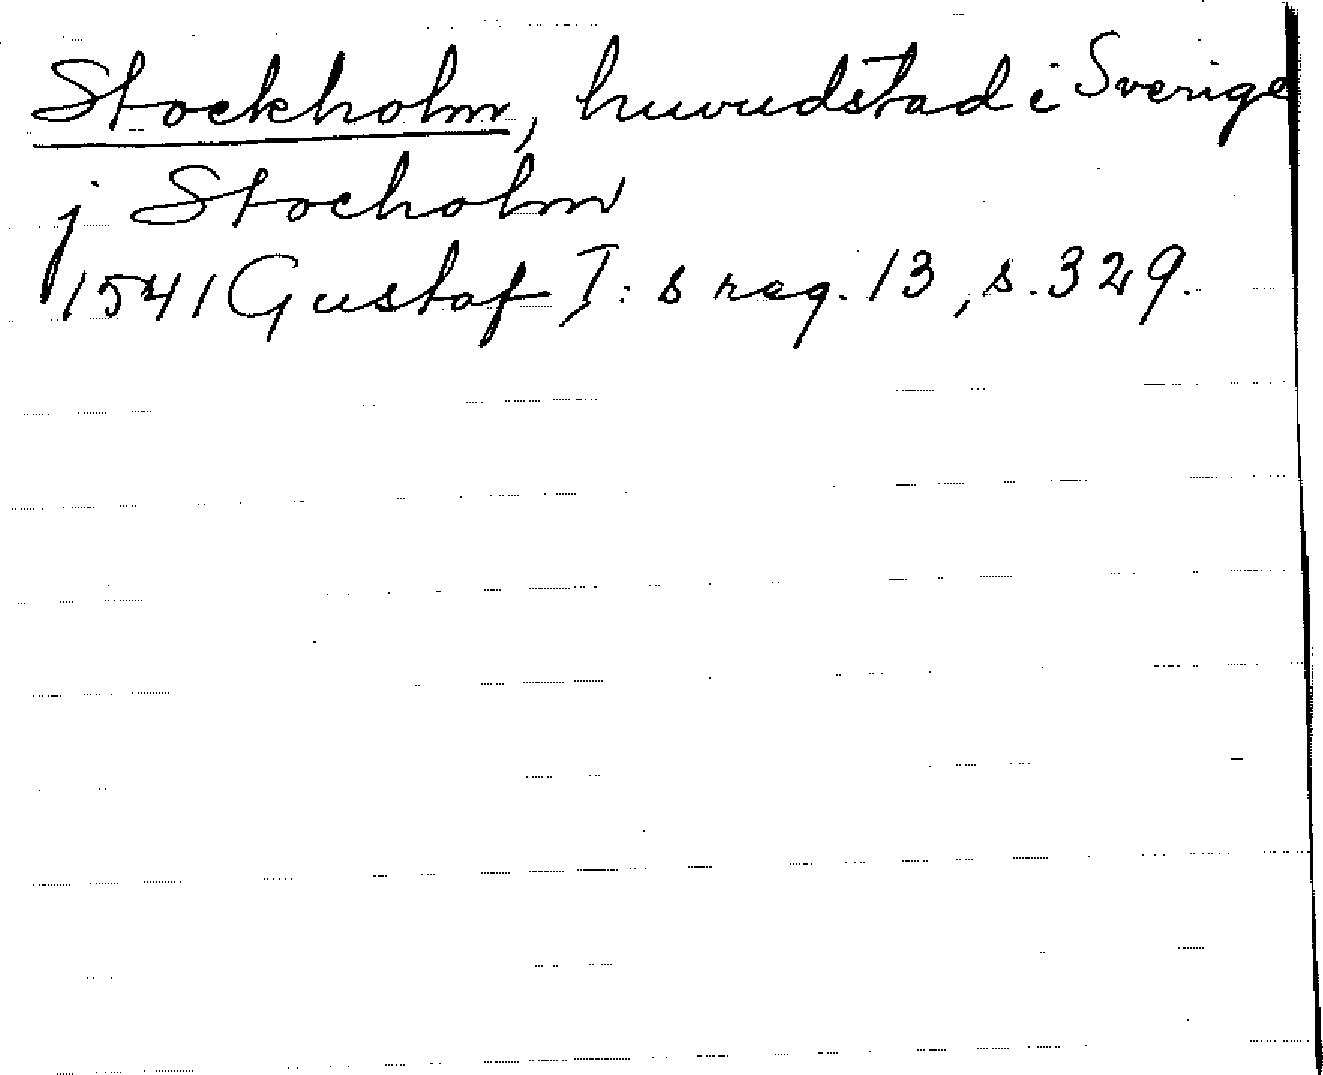 Stockholm, huvudstad i Sverige
j Stocholm
1541 Gustaf I: s reg. 13, s. 329.